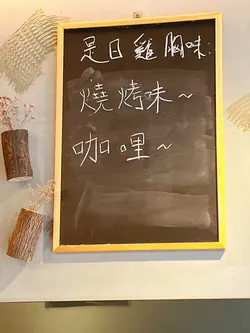 是日雞胸味:
燒烤味~
咖哩~